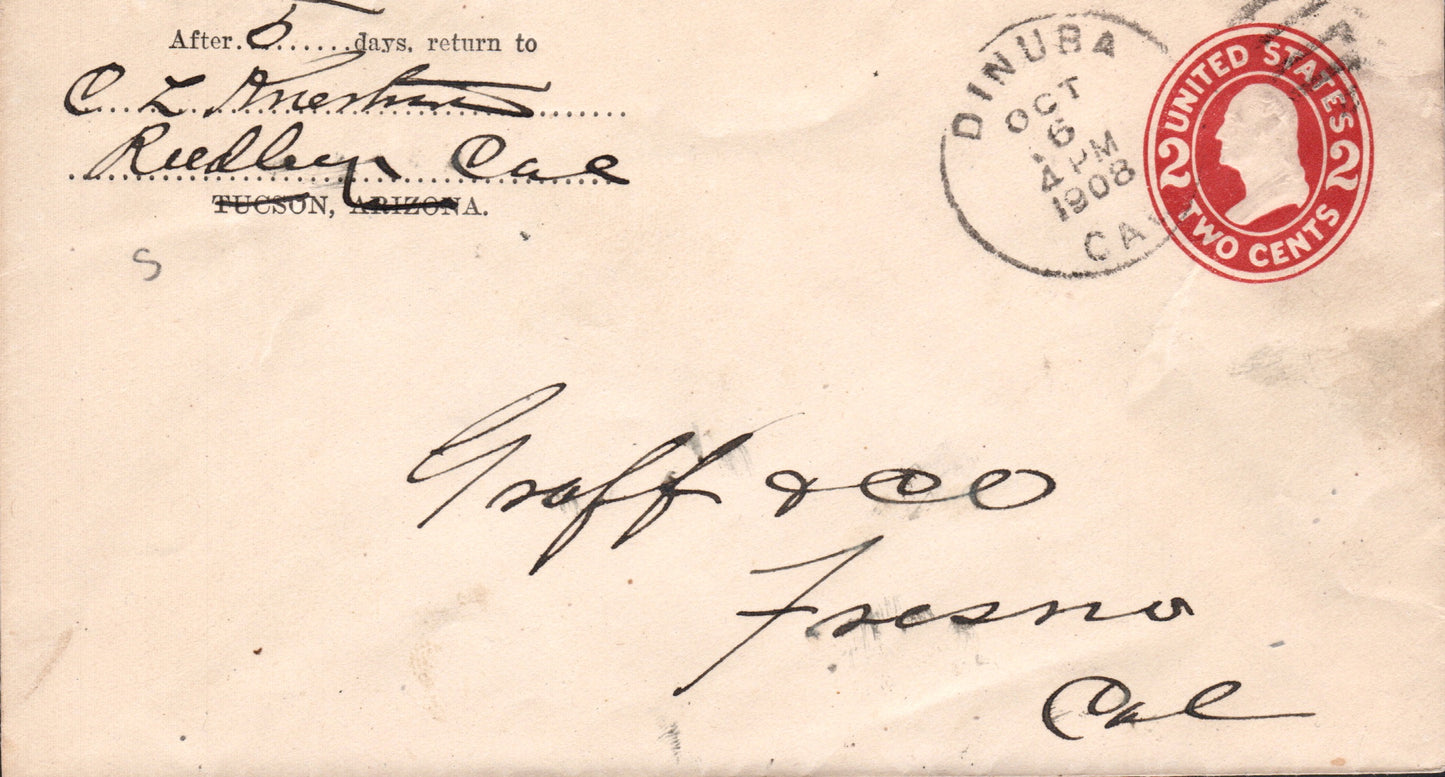 After. 5 ......days, return to
C L
Reedley Cal
TUCSON, ARIZONA.
S
DINUBA
OCT
6
4 PM
1908
CAL
UNITED STATES
2 2
TWO CENTS
Graff & CO
Fresno
Cal